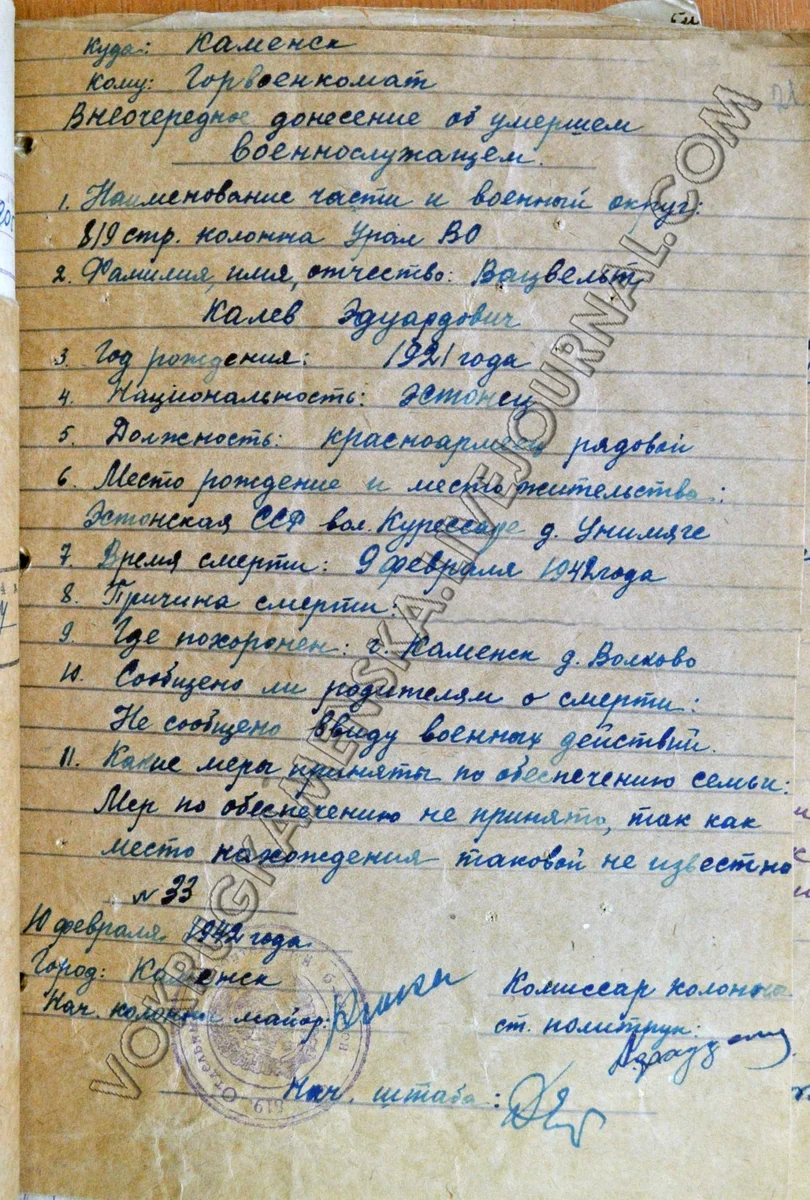 21
куда: Каменск
кому: Горвоенкомат
Внеочередное донесение об умершем
военнослужащем.
1. Наименование части и военный округ:
819 стр. колонна Урал ВО
2. Фамилия, имя, отчество: Вацвельт
Калев Эдуардович
3. Год рождения: 1921 года
4. Национальность: эстонец
5. Должность: красноармеец рядовой
6. Место рождение и место жительства:
Эстонская ССР вол. Курессаре д. Унимяге
7. Время смерти: 9 февраля 1942 года
8. Причина смерти:
9. Где похоронен: г. Каменск д. Волково
10. Сообщено ли родителям о смерти:
Не сообщено ввиду военных действий.
11. Какие меры приняты по обеспечению семьи:
Мер по обеспечению не принято, так как
место нахождения таковой не известно
N 33
10 февраля 1942 года
Город: Каменск
Нач. колонны майор:
Комиссар колонны
ст. политрук:
Нач. штаба:
819 Отдельн
VOKRUGKAMENSKA.LIVEJOURNAL.COM